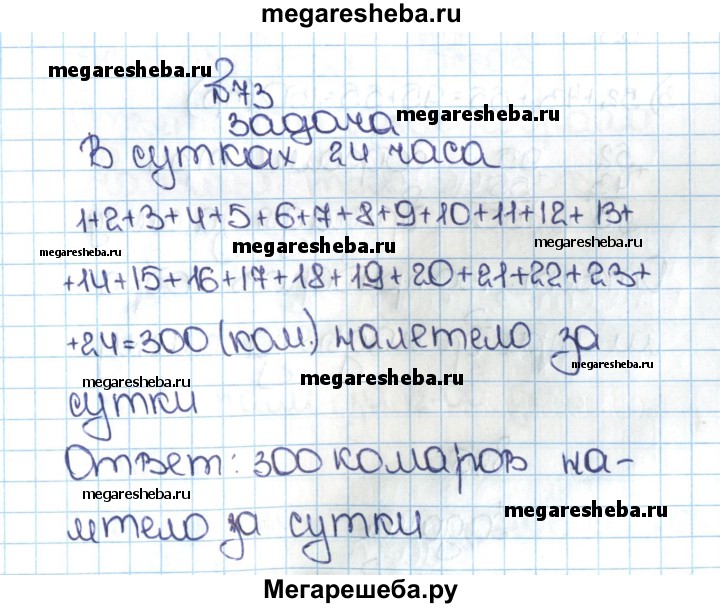 megaresheba.ru
megaresheba.ru
№73
задача megaresheba.ru
В сутках 24 часа
1+2+3+4+5+6+7+8+9+10+11+12+13+
megaresheba.ru megaresheba.ru megaresheba.ru
+14+15+16+17+18+19+20+21+22+23+
+24=300 (ком.) налетело за
megaresheba.ru megaresheba.ru megaresheba.ru
сутки
Ответ: 300 комаров на-
megaresheba.ru megaresheba.ru
летело за сутки
Мегарешеба.ру